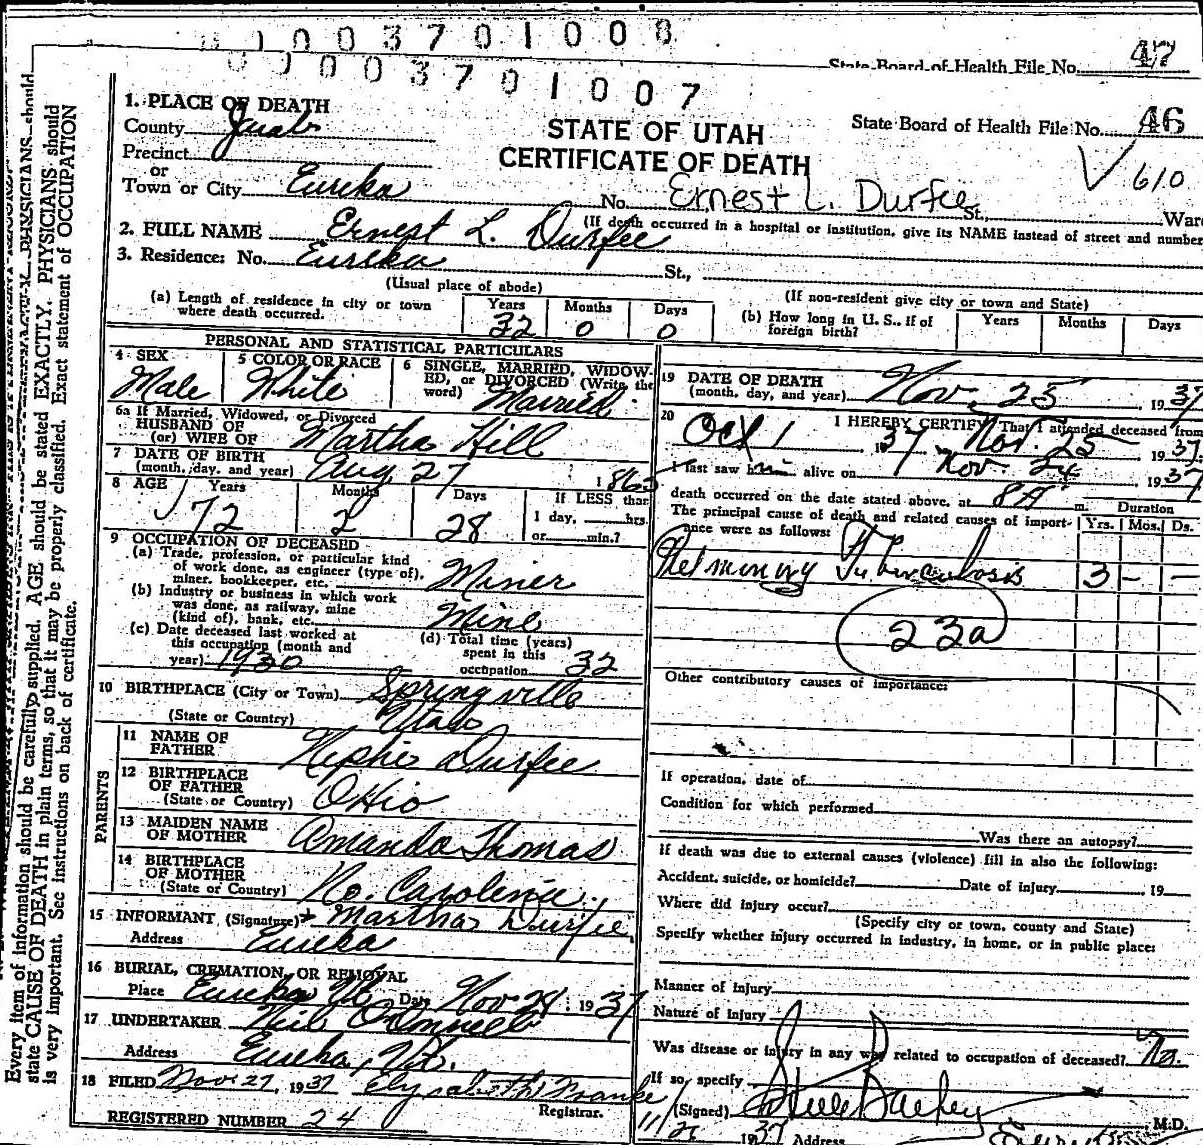 0 0 0 3 7 0 1 0 0 8
State Board of Health File No. 47
0 0 0 3 7 0 1 0 0 7
1. PLACE OF DEATH
County Juab
STATE OF UTAH
State Board of Health File No. 46
Precinct
CERTIFICATE OF DEATH
610
or
Town or City Eureka No. Ernest L. Durfee St., War
(If death occurred in a hospital or institution, give its NAME instead of street and number
2. FULL NAME Ernest L. Durfee
3. Residence: No. Eureka St.,
(Usual place of abode)
(If non-resident give city or town and State)
(a) Length of residence in city or town where death occurred. Years 32 Months 0 Days 0
(b) How long in U. S., if of foreign birth? Years Months Days
PERSONAL AND STATISTICAL PARTICULARS
4 SEX Male
5 COLOR OR RACE White
6 SINGLE, MARRIED, WIDOWED, or DIVORCED (Write the word) Married
6a If Married, Widowed, or Divorced
HUSBAND OF
(or) WIFE OF Martha Hill
7 DATE OF BIRTH
(month, day, and year) Aug 27 1865
8 AGE Years 72 Months 2 Days 28
If LESS than
1 day, hrs.
or min.?
9 OCCUPATION OF DECEASED
(a) Trade, profession, or particular kind
of work done, as engineer (type of),
miner, bookkeeper, etc. Miner
(b) Industry or business in which work
was done, as railway, mine
(kind of), bank, etc. Mine
(c) Date deceased last worked at
this occupation (month and
year) 1930
(d) Total time (years)
spent in this
occupation 32
10 BIRTHPLACE (City or Town) Springville
(State or Country) Utah
PARENTS
11 NAME OF
FATHER Nephi Durfee
12 BIRTHPLACE
OF FATHER
(State or Country) Ohio
13 MAIDEN NAME
OF MOTHER Amanda Thomas
14 BIRTHPLACE
OF MOTHER
(State or Country) No. Carolina
15 INFORMANT (Signature) Martha Durfee
Address Eureka
16 BURIAL, CREMATION, OR REMOVAL
Place Eureka Ut. Date Nov 28 1937
17 UNDERTAKER Neil O'Donnell
Address Eureka, Ut.
18 FILED Nov 27, 1937
Registrar.
REGISTERED NUMBER 24
19 DATE OF DEATH
(month, day, and year) Nov. 25, 1937
20 I HEREBY CERTIFY, That I attended deceased from
Oct 1 1937 Nov. 25 1937
I last saw him alive on Nov. 24 1937
death occurred on the date stated above, at 8 A m. Duration
The principal cause of death and related causes of importance were as follows: Yrs. Mos. Ds.
Pulmonary Tuberculosis 3 - -
23a
Other contributory causes of importance:
If operation, date of
Condition for which performed
Was there an autopsy?
If death was due to external causes (violence) fill in also the following:
Accident, suicide, or homicide? Date of injury 19
Where did injury occur?
(Specify city or town, county and State)
Specify whether injury occurred in industry, in home, or in public place:
Manner of injury
Nature of Injury
Was disease or injury in any way related to occupation of deceased? No.
If so, specify
(Signed) M.D.
1937 Address
Every item of information should be carefully supplied. AGE should be stated EXACTLY. PHYSICIANS should
state CAUSE OF DEATH in plain terms, so that it may be properly classified. Exact statement of OCCUPATION
is very important. See instructions on back of certificate.